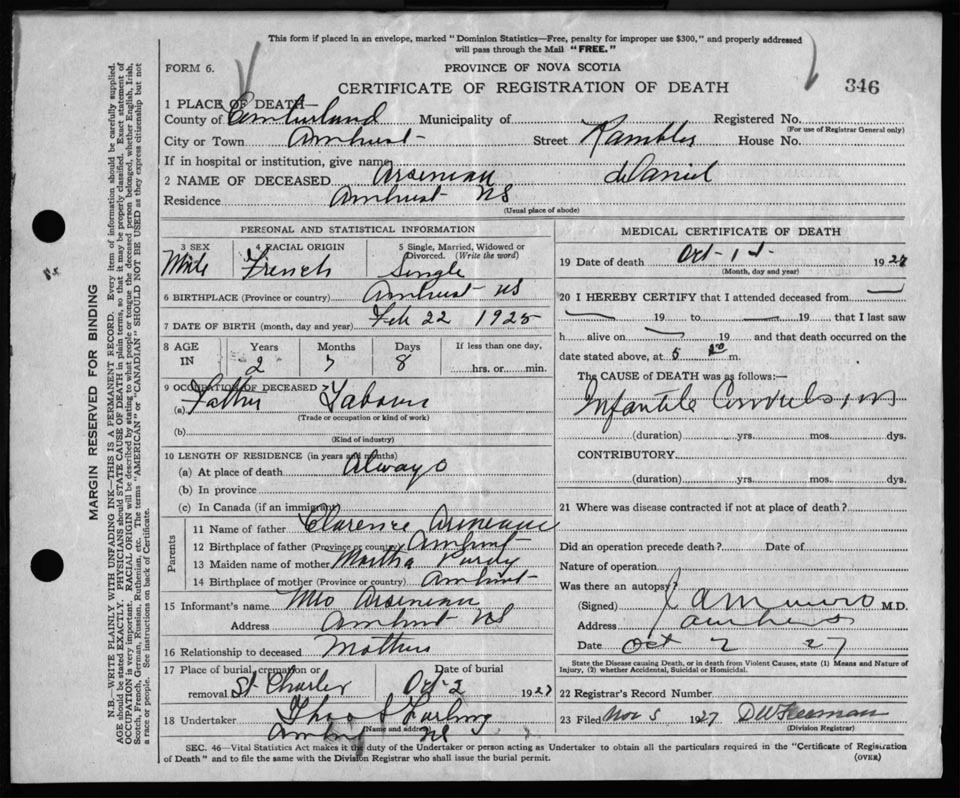 This form if placed in an envelope, marked "Dominion Statistics—Free, penalty for improper use $300," and properly addressed
will pass through the Mail "FREE."
FORM 6.
PROVINCE OF NOVA SCOTIA
CERTIFICATE OF REGISTRATION OF DEATH
346
1 PLACE OF DEATH—
County of Cumberland Municipality of Registered No.
(For use of Registrar General only)
City or Town Amherst Street Rambler House No.
If in hospital or institution, give name
2 NAME OF DECEASED Arseneau Daniel
Residence Amherst NS
(Usual place of abode)
PERSONAL AND STATISTICAL INFORMATION
3 SEX 4 RACIAL ORIGIN 5 Single, Married, Widowed or Divorced. (Write the word)
Male French Single
6 BIRTHPLACE (Province or country) Amherst NS
7 DATE OF BIRTH (month, day and year) Feb 22 1925
8 AGE IN Years Months Days If less than one day,
2 7 8 hrs. or min.
9 OCCUPATION OF DECEASED
(a) Father Labourer
(Trade or occupation or kind of work)
(b)
(Kind of industry)
10 LENGTH OF RESIDENCE (in years and months)
(a) At place of death Always
(b) In province
(c) In Canada (if an immigrant)
Parents
11 Name of father Clarence Arseneau
12 Birthplace of father (Province or country) Amherst
13 Maiden name of mother Martha Purdy
14 Birthplace of mother (Province or country) Amherst
15 Informant's name Mrs Arseneau
Address Amherst NS
16 Relationship to deceased Mother
17 Place of burial, cremation or removal St. Charles Date of burial Oct-2 1927
18 Undertaker
Amherst NS
(Name and address)
MEDICAL CERTIFICATE OF DEATH
19 Date of death Oct-1st 1927
(Month, day and year)
20 I HEREBY CERTIFY that I attended deceased from
19 to 19 that I last saw
h alive on 19 and that death occurred on the
date stated above, at 5 m.
The CAUSE of DEATH was as follows:—
Infantile Convulsions
(duration) yrs. mos. dys.
CONTRIBUTORY.
(duration) yrs. mos. dys.
21 Where was disease contracted if not at place of death?
Did an operation precede death? Date of
Nature of operation
Was there an autopsy?
(Signed) M.D.
Address Amherst
Date Oct 2 27
State the Disease causing Death, or in death from Violent Causes, state (1) Means and Nature of
Injury, (2) whether Accidental, Suicidal or Homicidal.
22 Registrar's Record Number
23 Filed Nov 5 1927 DW Freeman
(Division Registrar)
SEC. 46—Vital Statistics Act makes it the duty of the Undertaker or person acting as Undertaker to obtain all the particulars required in the "Certificate of Registration
of Death" and to file the same with the Division Registrar who shall issue the burial permit.
(OVER)
MARGIN RESERVED FOR BINDING
N.B.—WRITE PLAINLY WITH UNFADING INK—THIS IS A PERMANENT RECORD. Every item of information should be carefully supplied.
AGE should be stated EXACTLY. PHYSICIANS should STATE CAUSE OF DEATH in plain terms, so that it may be properly classified. Exact statement of
OCCUPATION is very important. RACIAL ORIGIN will be described by stating to what people or tongue the deceased person belonged, whether English, Irish,
Scotch, French, German, Russian, Ruthenian, etc. The terms "AMERICAN" or "CANADIAN" SHOULD NOT BE USED as they express citizenship but not
a race or people. See instructions on back of Certificate.